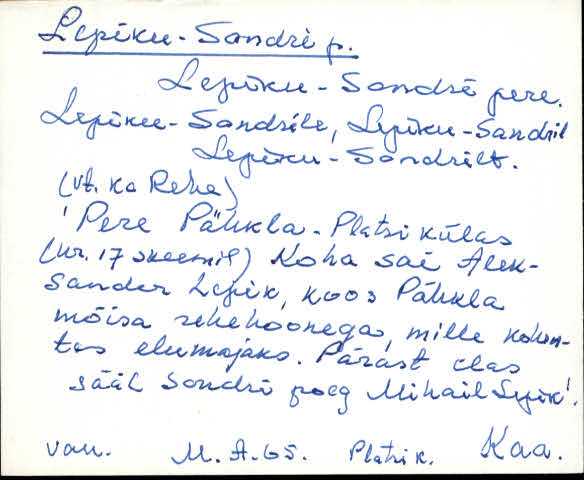 Lepiku-Sandri p.
Lepiku-Sandri pere.
Lepiku-Sandrile, Lepiku-Sandril
Lepiku-Sandrilt.
(vt. ka Reha)
'Pere Pähkla-Platsi külas
(nr. 17 skeemil) Koha sai Alek-
sander Lepik, koos Pähkla
mõisa rehehoonega, mille kohen-
tas elumajaks. Pärast elas
sääl Sandri poeg Mihail Lepik'.
van. M. A. 65. Platsi k. Kaa.